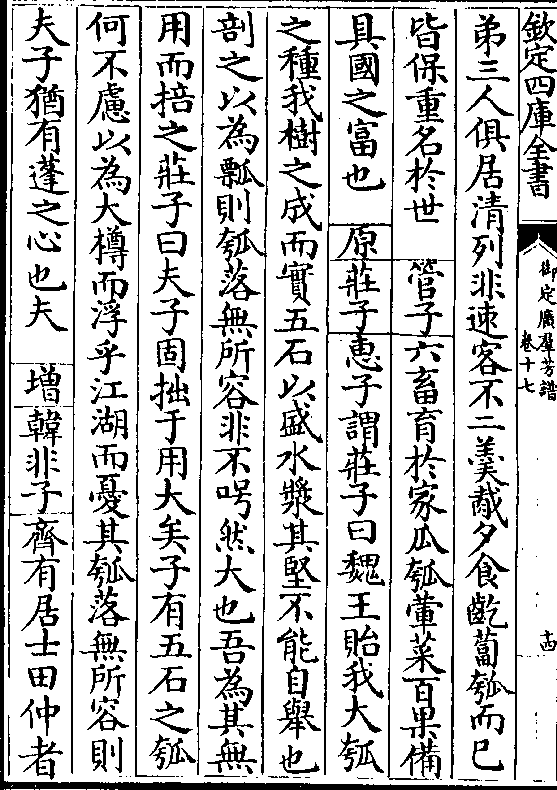 欽定四庫全書
御定廣羣芳譜
卷十七
十四
弟三人俱居清列非速客不二羹胾夕食齕蔔瓠而已
皆保重名於世 管子六畜育於家瓜瓠葷菜百果備
具國之富也 原莊子惠子謂莊子曰魏王貽我大瓠
之種我樹之成而實五石以盛水漿其堅不能自舉也
剖之以為瓢則瓠落無所容非不呺然大也吾為其無
用而掊之莊子曰夫子固拙于用大矣子有五石之瓠
何不慮以為大樽而浮乎江湖而憂其瓠落無所容則
夫子猶有蓬之心也夫 增韓非子齊有居士田仲者